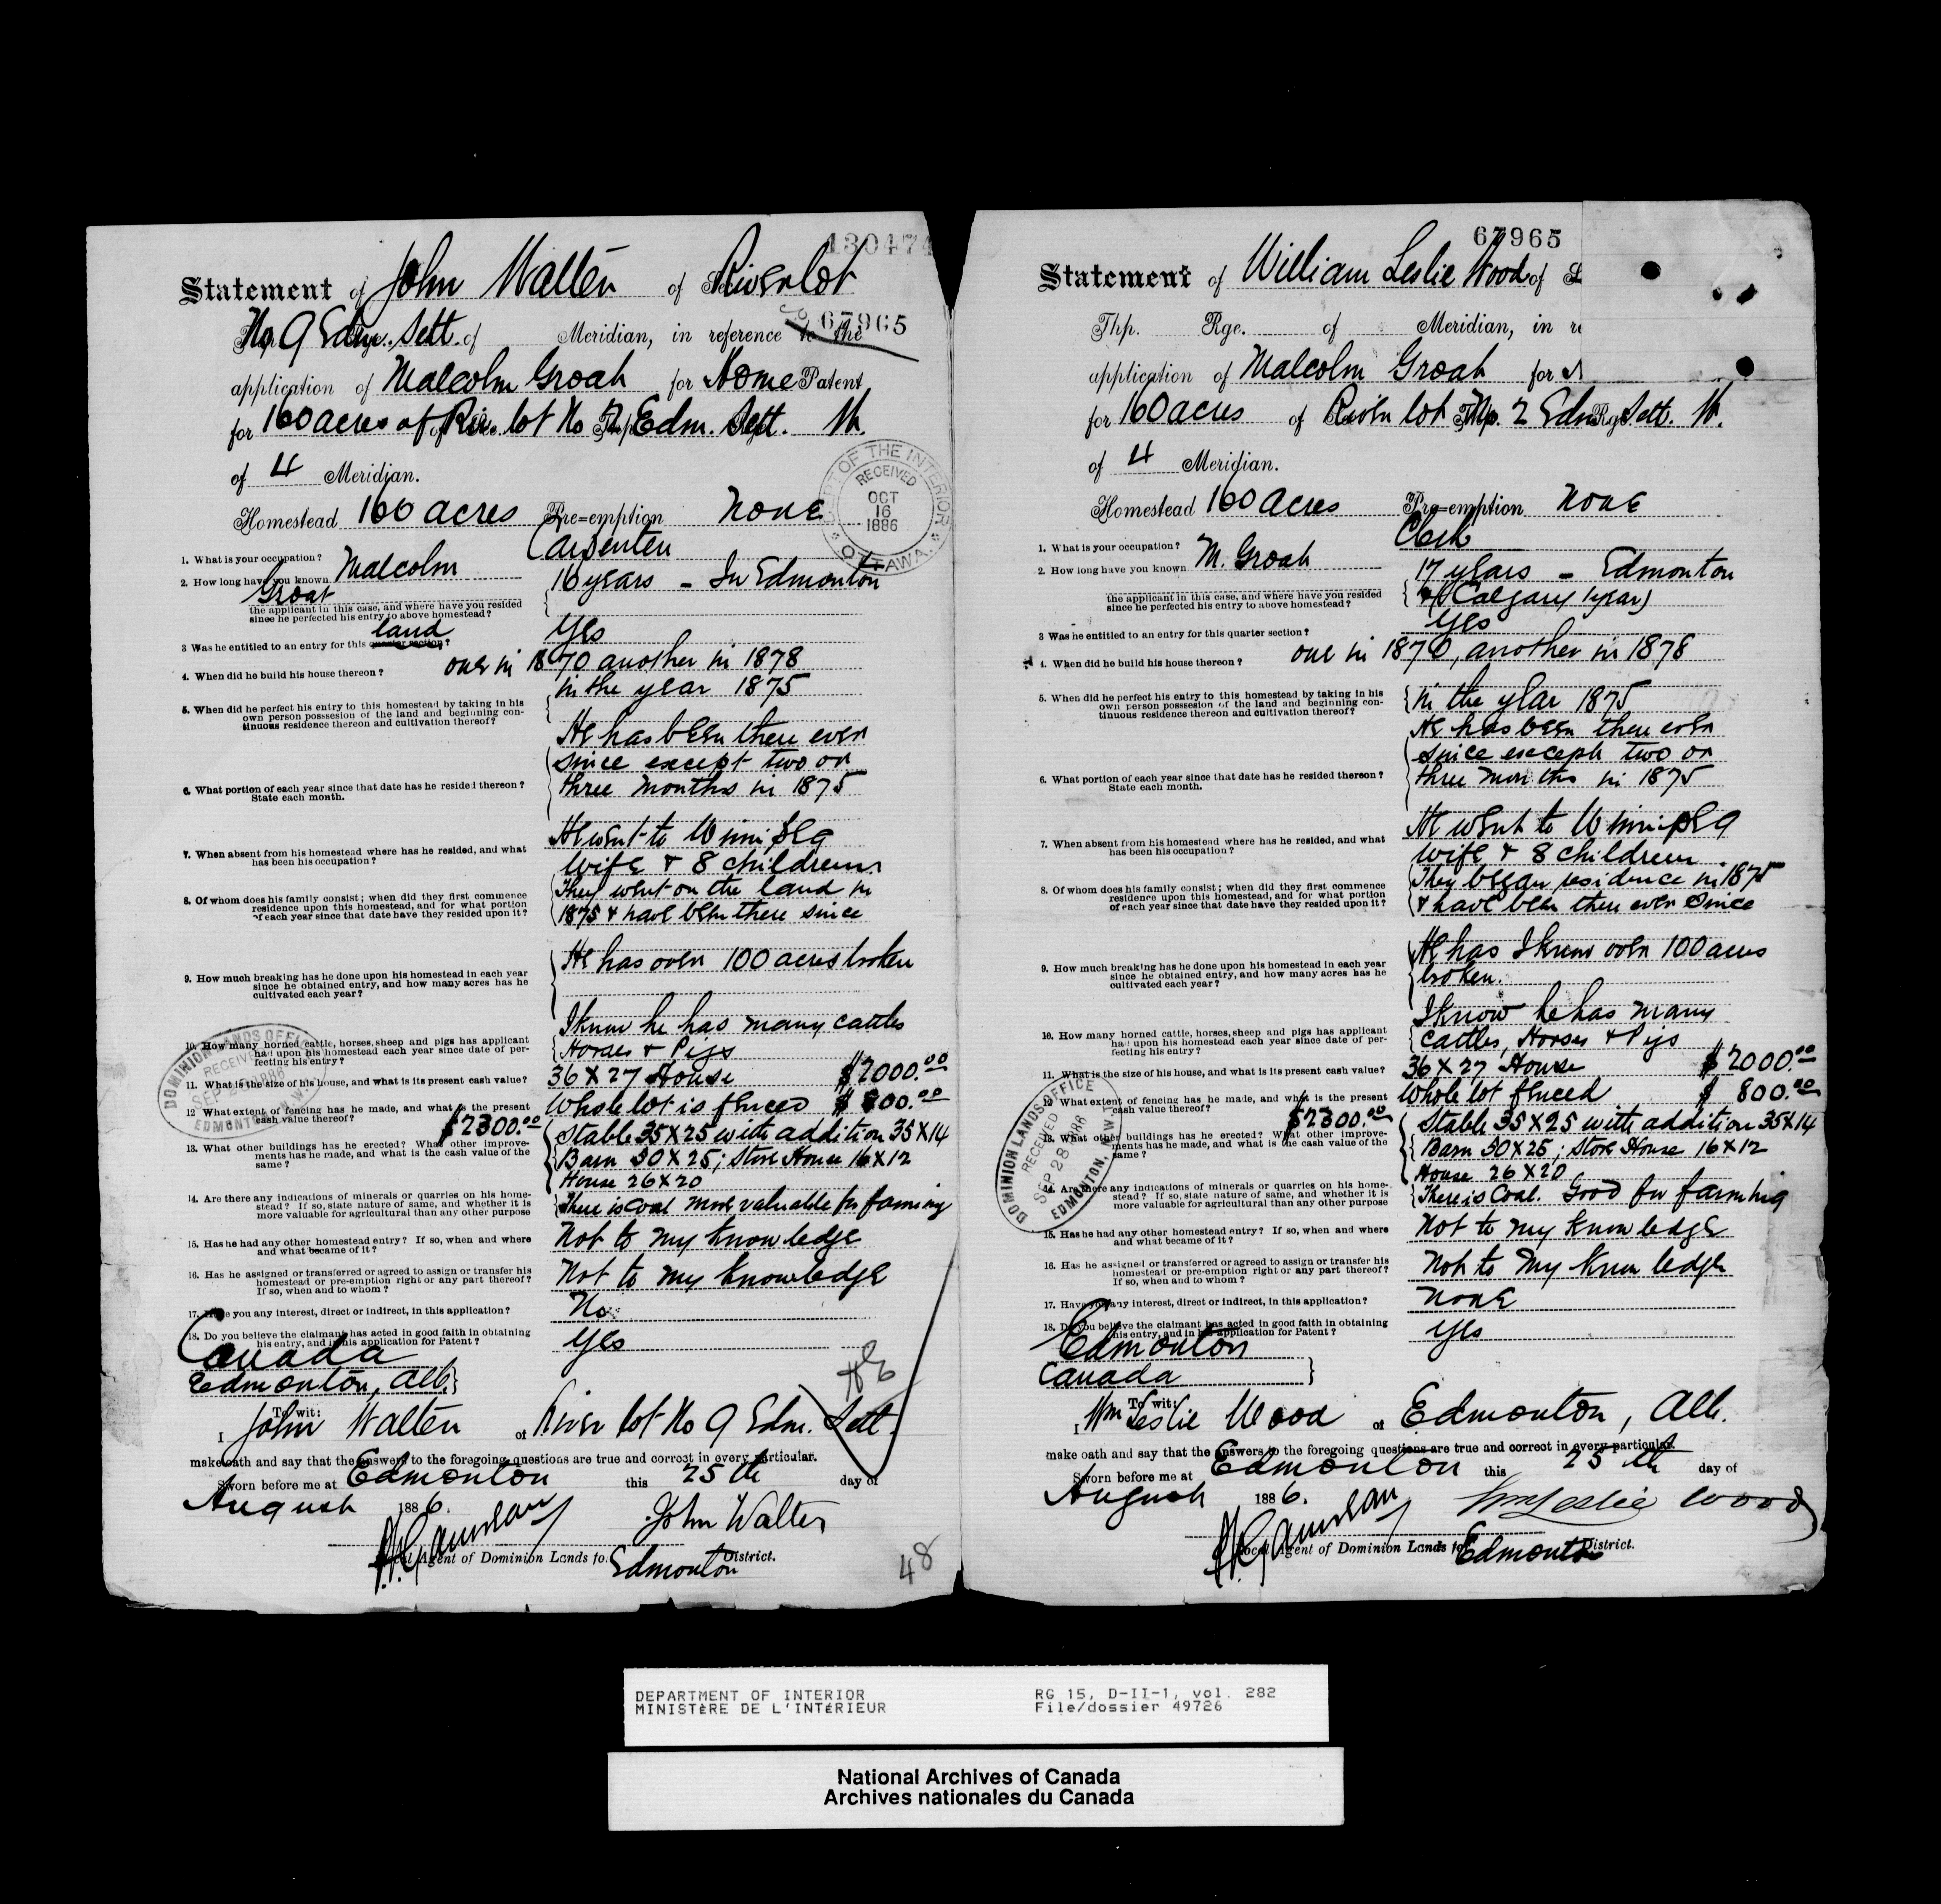 130474
Statement of John Walter of River lot
67965
No 9 Edm. Sett. of Meridian, in reference to the
application of Malcolm Groat for Home Patent
for 160 acres of Riv. lot No 2 Edm. Sett. W.
of 4 Meridian.
Homestead 160 acres Pre=emption None
DEPT OF THE INTERIOR
RECEIVED
OCT
16
1886
OTTAWA.
1. What is your occupation? Carpenter
2. How long have you known Malcolm
Groat
the applicant in this case, and where have you resided
since he perfected his entry to above homestead?
16 years - In Edmonton
land
3 Was he entitled to an entry for this quarter section? Yes
4. When did he build his house thereon? one in 1870 another in 1878
5. When did he perfect his entry to this homestead by taking in his
own person possession of the land and beginning con-
tinuous residence thereon and cultivation thereof?
in the year 1875
6. What portion of each year since that date has he resided thereon?
State each month.
He has been there ever
since except two or
three months in 1875
7. When absent from his homestead where has he resided, and what
has been his occupation?
He went to Winnipeg
8. Of whom does his family consist; when did they first commence
residence upon this homestead, and for what portion
of each year since that date have they resided upon it?
Wife & 8 children
They went on the land in
1875 & have been there since
9. How much breaking has he done upon his homestead in each year
since he obtained entry, and how many acres has he
cultivated each year?
He has over 100 acres broken
10. How many horned cattle, horses, sheep and pigs has applicant
had upon his homestead each year since date of per-
fecting his entry?
I know he has many cattles
Horses & Pigs
11. What is the size of his house, and what is its present cash value?
36 X 27 House $2000.00
12 What extent of fencing has he made, and what is the present
cash value thereof?
Whole lot is fenced $800.00
$2300.00
13. What other buildings has he erected? What other improve-
ments has he made, and what is the cash value of the
same?
Stable 35X25 with addition 35X14
Barn 30X25; Store House 16X12
House 26X20
14. Are there any indications of minerals or quarries on his home-
stead? If so, state nature of same, and whether it is
more valuable for agricultural than any other purpose
There is coal more valuable for farming
15. Has he had any other homestead entry? If so, when and where
and what became of it?
Not to my knowledge
16. Has he assigned or transferred or agreed to assign or transfer his
homestead or pre-emption right or any part thereof?
If so, when and to whom?
Not to my knowledge
17. Have you any interest, direct or indirect, in this application?
No
18. Do you believe the claimant has acted in good faith in obtaining
his entry, and in his application for Patent?
Yes
DOMINION LANDS OFFICE
RECEIVED
SEP 28 1886
EDMONTON, N.W.T.
Canada
Edmonton, Alb.
To wit:
I John Walter of River lot No 9 Edm. Sett.
make oath and say that the answers to the foregoing questions are true and correct in every particular.
Sworn before me at Edmonton this 25th day of
August 1886. John Walter
Local Agent of Dominion Lands to. Edmonton District.
48
67965
Statement of William Leslie Wood of
Thp. Rge. of Meridian, in re
application of Malcolm Groat for
for 160 acres of River lot No. 2 Edm Sett. W.
of 4 Meridian.
Homestead 160 acres Pre=emption None
1. What is your occupation? Clerk
2. How long have you known M. Groat
the applicant in this case, and where have you resided
since he perfected his entry to above homestead?
17 years - Edmonton
& (Calgary 1 year)
3 Was he entitled to an entry for this quarter section? Yes
4. When did he build his house thereon? one in 1870, another in 1878
5. When did he perfect his entry to this homestead by taking in his
own person possession of the land and beginning con-
tinuous residence thereon and cultivation thereof?
in the year 1875
6. What portion of each year since that date has he resided thereon?
State each month.
He has been there ever
since except two or
three months in 1875
7. When absent from his homestead where has he resided, and what
has been his occupation?
He went to Winnipeg
8. Of whom does his family consist; when did they first commence
residence upon this homestead, and for what portion
of each year since that date have they resided upon it?
Wife & 8 children
They began residence in 1875
& have been there ever since
9. How much breaking has he done upon his homestead in each year
since he obtained entry, and how many acres has he
cultivated each year?
He has I know over 100 acres
broken.
10. How many horned cattle, horses, sheep and pigs has applicant
had upon his homestead each year since date of per-
fecting his entry?
I know he has many
cattles, Horses & Pigs
11. What is the size of his house, and what is its present cash value?
36 X 27 House $2000.00
12 What extent of fencing has he made, and what is the present
cash value thereof?
Whole lot fenced $ 800.00
$2300.00
13. What other buildings has he erected? What other improve-
ments has he made, and what is the cash value of the
same?
Stable 35X25 with addition 35X14
Barn 30X25; Store House 16X12
House 26X20
14. Are there any indications of minerals or quarries on his home-
stead? If so, state nature of same, and whether it is
more valuable for agricultural than any other purpose
There is Coal. Good for farming
15. Has he had any other homestead entry? If so, when and where
and what became of it?
Not to my knowledge
16. Has he assigned or transferred or agreed to assign or transfer his
homestead or pre-emption right or any part thereof?
If so, when and to whom?
Not to my knowledge
17. Have you any interest, direct or indirect, in this application?
None
18. Do you believe the claimant has acted in good faith in obtaining
his entry, and in his application for Patent?
Yes
DOMINION LANDS OFFICE
RECEIVED
SEP 28 1886
EDMONTON, N.W.T.
Edmonton
Canada
To wit:
I Wm Leslie Wood of Edmonton, Alb.
make oath and say that the answers to the foregoing questions are true and correct in every particular.
Sworn before me at Edmonton this 25th day of
August 1886. Wm Leslie Wood
Local Agent of Dominion Lands to Edmonton District.
DEPARTMENT OF INTERIOR RG 15, D-II-1, vol. 282
MINISTÈRE DE L'INTÉRIEUR File/dossier 49726
National Archives of Canada
Archives nationales du Canada